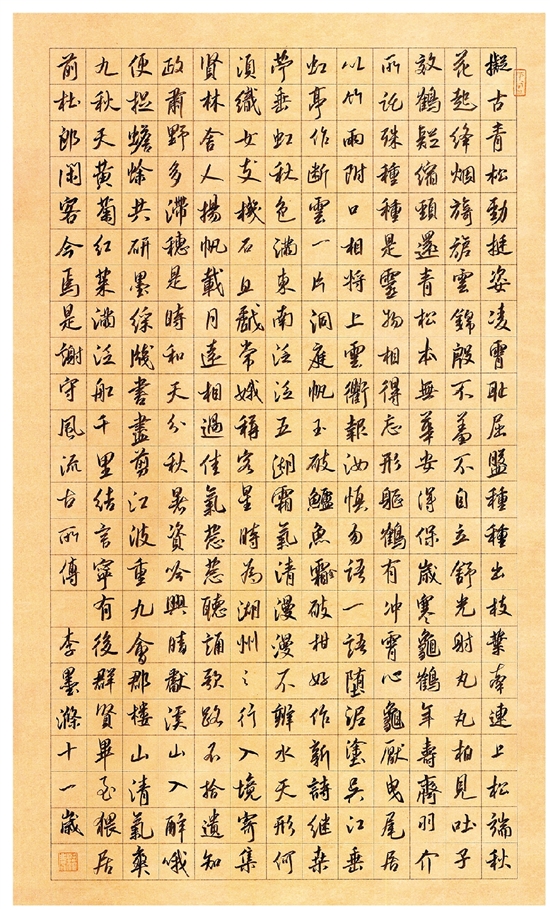 擬古青松勁挺姿凌霄恥屈盤種種出枝葉牽連上松端秋
花起絳烟旖旎雲錦殷不羞不自立舒光射丸丸柏見吐子
效鶴疑縮頸還青松本無華安得保歲寒龜鶴年壽齊羽介
所託殊種種是靈物相得忘形軀鶴有冲霄心龜厭曳尾居
以竹兩附口相將上雲衢報汝慎勿語一語墮泥塗吳江垂
虹亭作斷雲一片洞庭帆玉破鱸魚霜破柑好作新詩繼桑
苧垂虹秋色滿東南泛泛五湖霜氣清漫漫不辨水天形何
須織女支機石且戲常娥稱客星時為湖州之行入境寄集
賢林舍人揚帆載月遠相過佳氣葱葱聽誦歌路不拾遺知
政肅野多滯穗是時和天分秋暑資吟興晴獻溪山入醉哦
便捉蟾蜍共研墨綵牋書盡剪江波重九會郡樓山清氣爽
九秋天黃菊紅茱滿泛船千里結言寧有後群賢畢至猥居
前杜郎閑客今焉是謝守風流古所傳 李墨滌十一歲